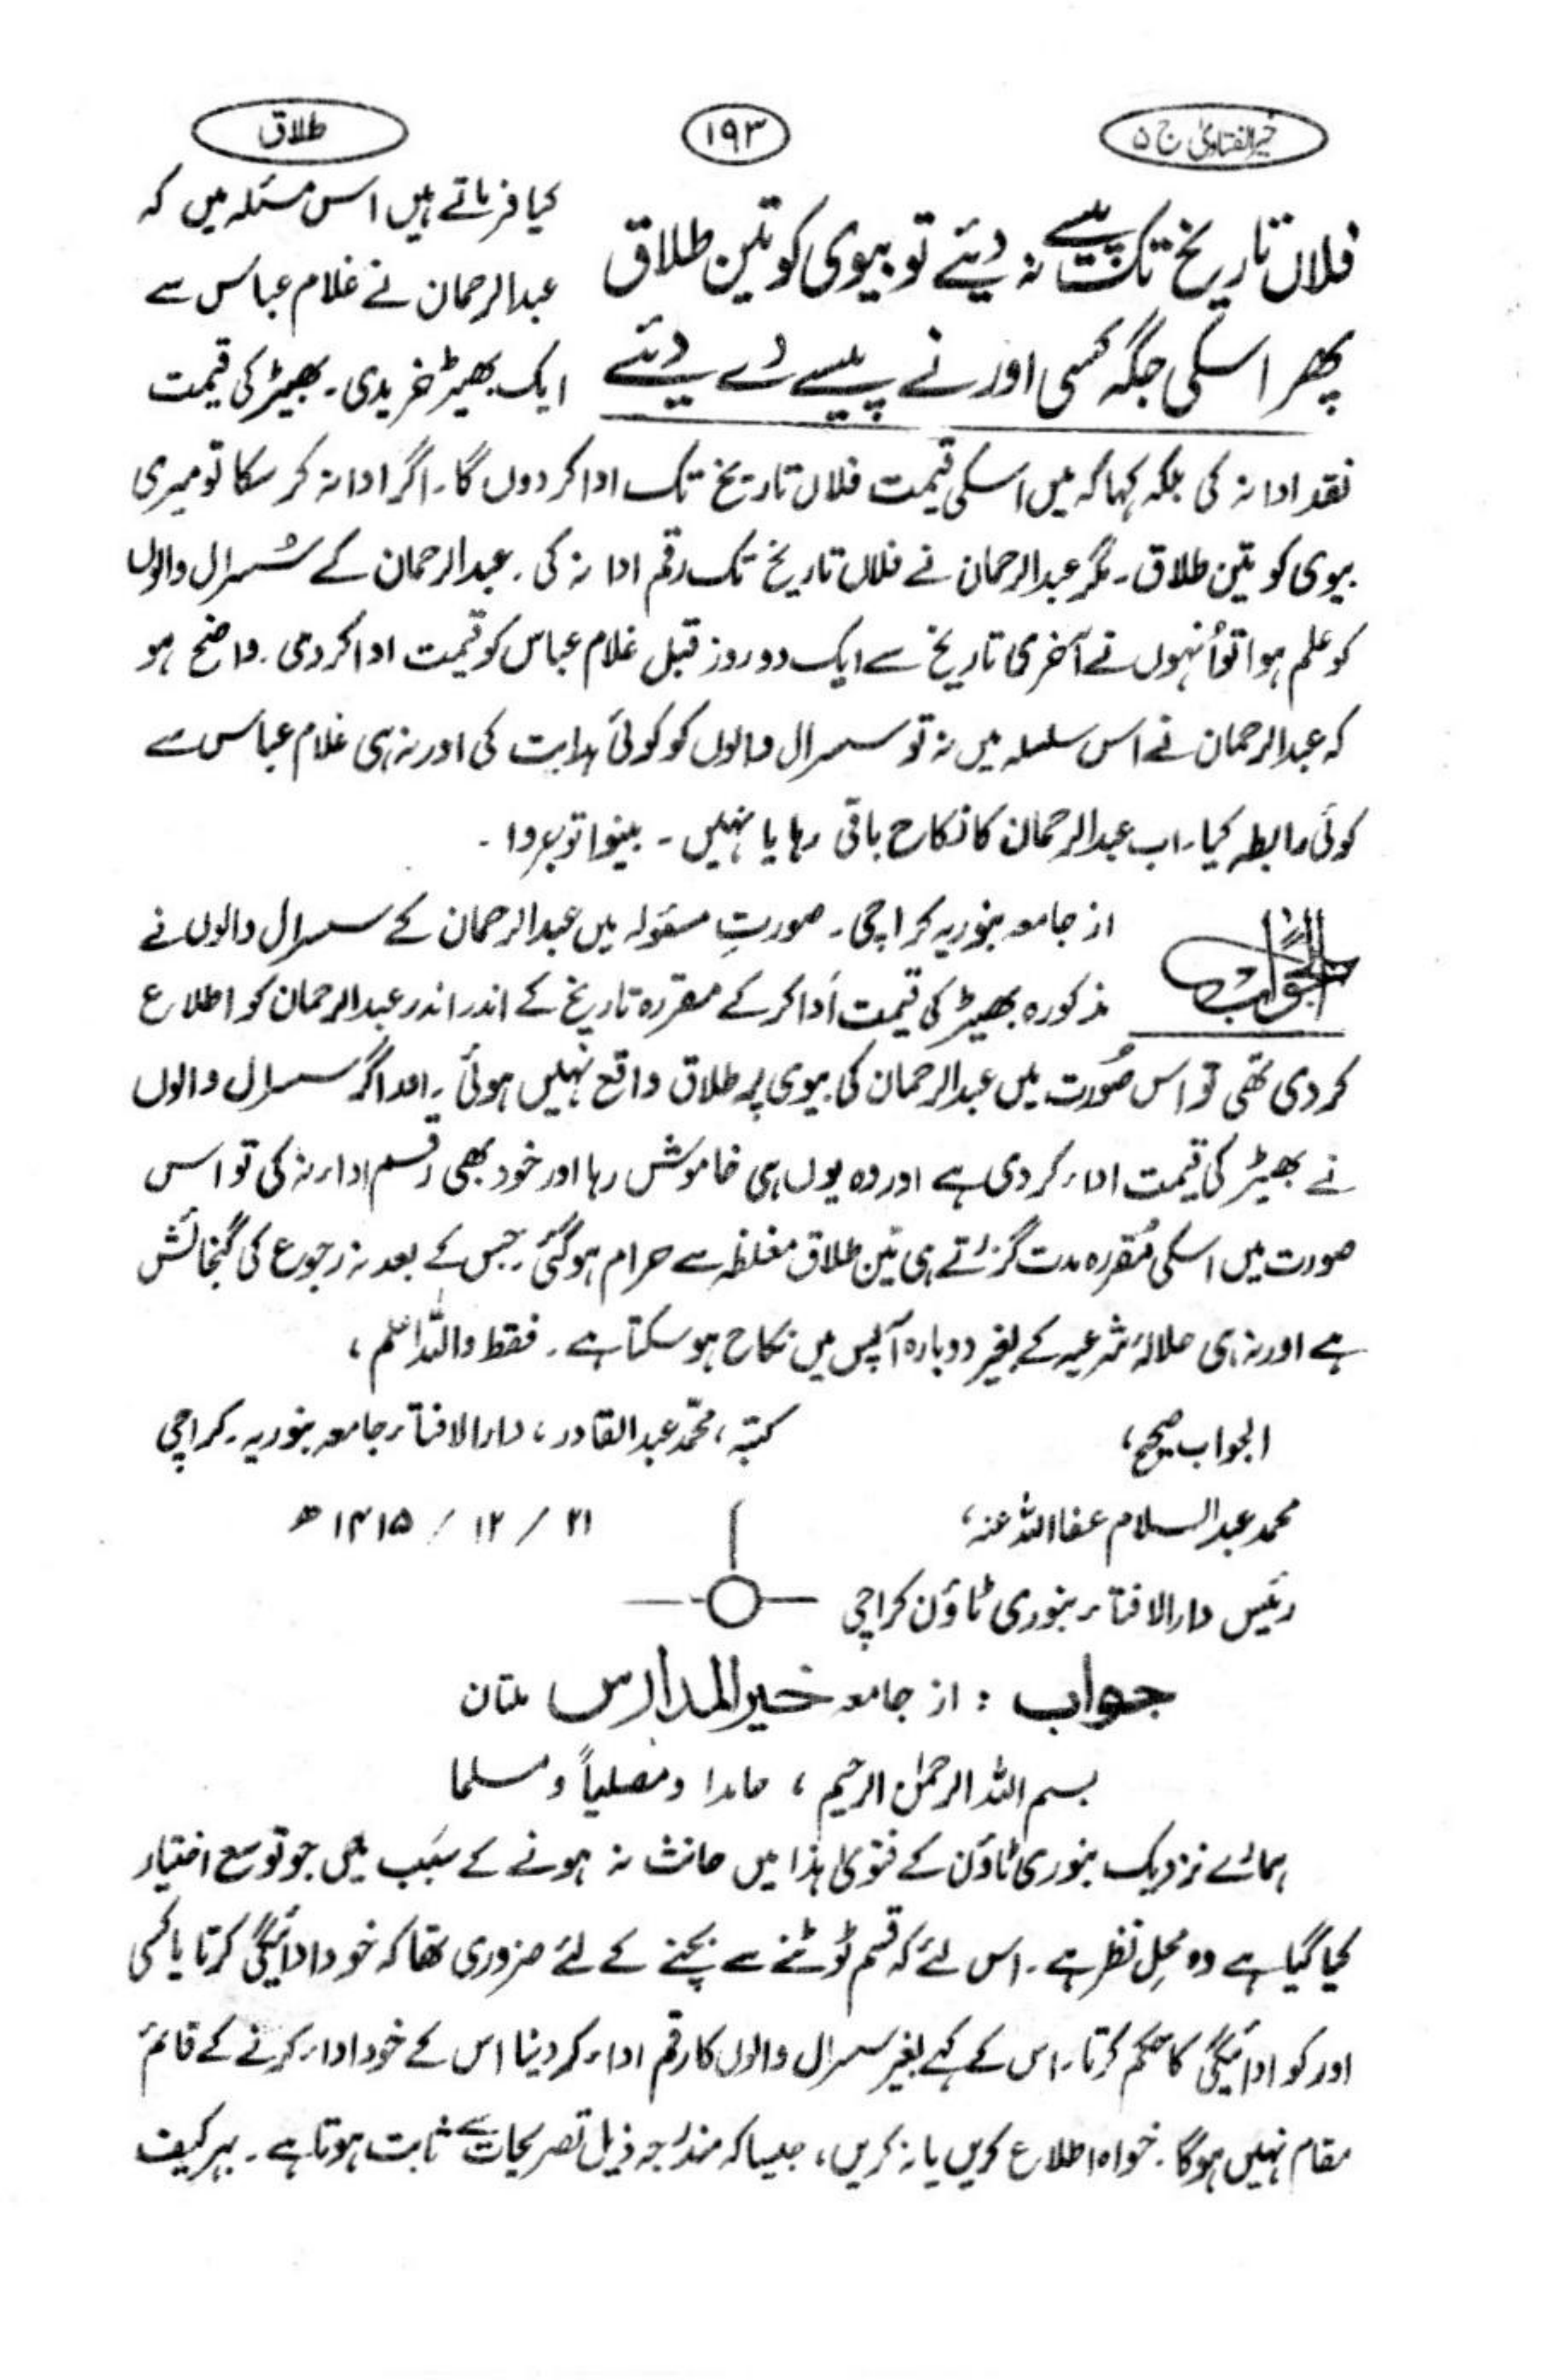 خیر الفتاویٰ ج ۵
۱۹۳
طلاق
فلاں تاریخ تک پیسے نہ دیئے تو بیوی کو تین طلاق
پھر اسکی جگہ کسی اور نے پیسے دے دیئے
کیا فرماتے ہیں اس مسئلہ میں کہ
عبدالرحمان نے غلام عباس سے
ایک بھیڑ خریدی۔ بھیڑ کی قیمت
نقد ادا نہ کی بلکہ کہا کہ میں اسکی قیمت فلاں تاریخ تک ادا کر دوں گا۔ اگر ادا نہ کر سکا تو میری
بیوی کو تین طلاق۔ مگر عبدالرحمان نے فلاں تاریخ تک رقم ادا نہ کی۔ عبدالرحمان کے سُسرال والوں
کو علم ہوا تو اُنہوں نے آخری تاریخ سے ایک دو روز قبل غلام عباس کو قیمت ادا کر دی۔ واضح ہو
کہ عبدالرحمان نے اس سلسلہ میں نہ تو سسرال والوں کو کوئی ہدایت کی اور نہ ہی غلام عباس سے
کوئی رابطہ کیا۔ اب عبدالرحمان کا نکاح باقی رہا یا نہیں۔ بینوا توجروا۔
الجواب
از جامعہ بنوریہ کراچی۔ صورتِ مسئولہ میں عبدالرحمان کے سسرال والوں نے
مذکورہ بھیڑ کی قیمت اَدا کر کے مقررہ تاریخ کے اندر اندر عبدالرحمان کو اطلاع
کر دی تھی تو اس صُورت میں عبدالرحمان کی بیوی پر طلاق واقع نہیں ہوئی۔ اور اگر سسرال والوں
نے بھیڑ کی قیمت اداء کر دی ہے اور وہ یوں ہی خاموش رہا اور خود بھی رقم اداء نہ کی تو اس
صورت میں اسکی مُقررہ مدت گزرتے ہی تین طلاق مغلظہ سے حرام ہو گئی۔ جس کے بعد نہ رجوع کی گنجائش
ہے اور نہ ہی حلالۂ شرعیہ کے بغیر دوبارہ آپس میں نکاح ہو سکتا ہے۔ فقط واللہ اعلم،
الجواب صحیح،
کتبہ، محمّد عبدالقادر، دارالافتاء جامعہ بنوریہ۔ کراچی
محمد عبدالسلام عفا اللہ عنہ،
۲۱ / ۱۲ / ۱۴۱۵ ھ
رئیس دارالافتاء بنوری ٹاؤن کراچی
جواب : از جامعہ خیر المدارس ملتان
بسم اللہ الرحمٰن الرحیم، حامدا و مصلیاً و مسلما
ہمارے نزدیک بنوری ٹاؤن کے فتویٰ ہذا میں حانث نہ ہونے کے سبب میں جو توسع اختیار
کیا گیا ہے وہ محلِ نظر ہے۔ اس لئے کہ قسم ٹوٹنے سے بچنے کے لئے ضروری تھا کہ خود ادائیگی کرتا یا کسی
اور کو ادائیگی کا حکم کرتا۔ اس کے کہے بغیر سسرال والوں کا رقم اداء کر دینا اس کے خود اداء کرنے کے قائم
مقام نہیں ہو گا۔ خواہ اطلاع کریں یا نہ کریں، جیسا کہ مندرجہ ذیل تصریحات سے ثابت ہوتا ہے۔ بہر کیف